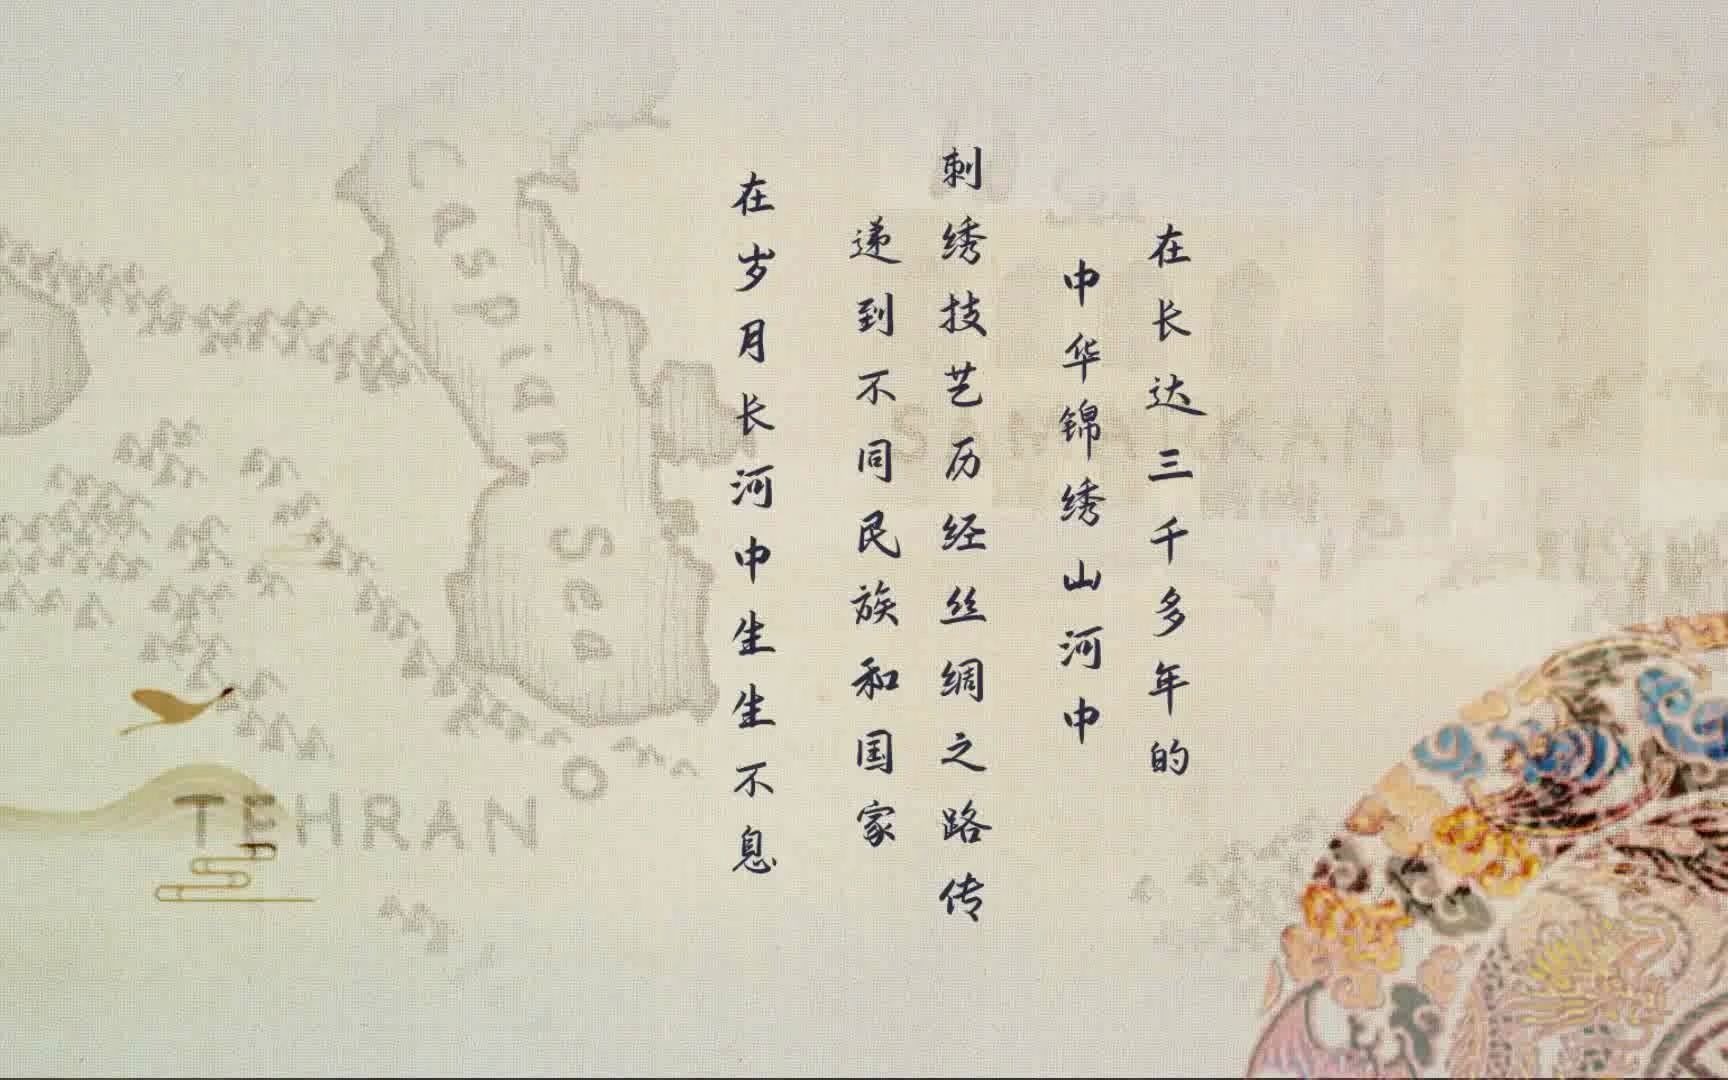 在长达三千多年的
中华锦绣山河中
刺绣技艺历经丝绸之路传
递到不同民族和国家
在岁月长河中生生不息
Caspian
Sea
TEHRAN
SAMARKAND